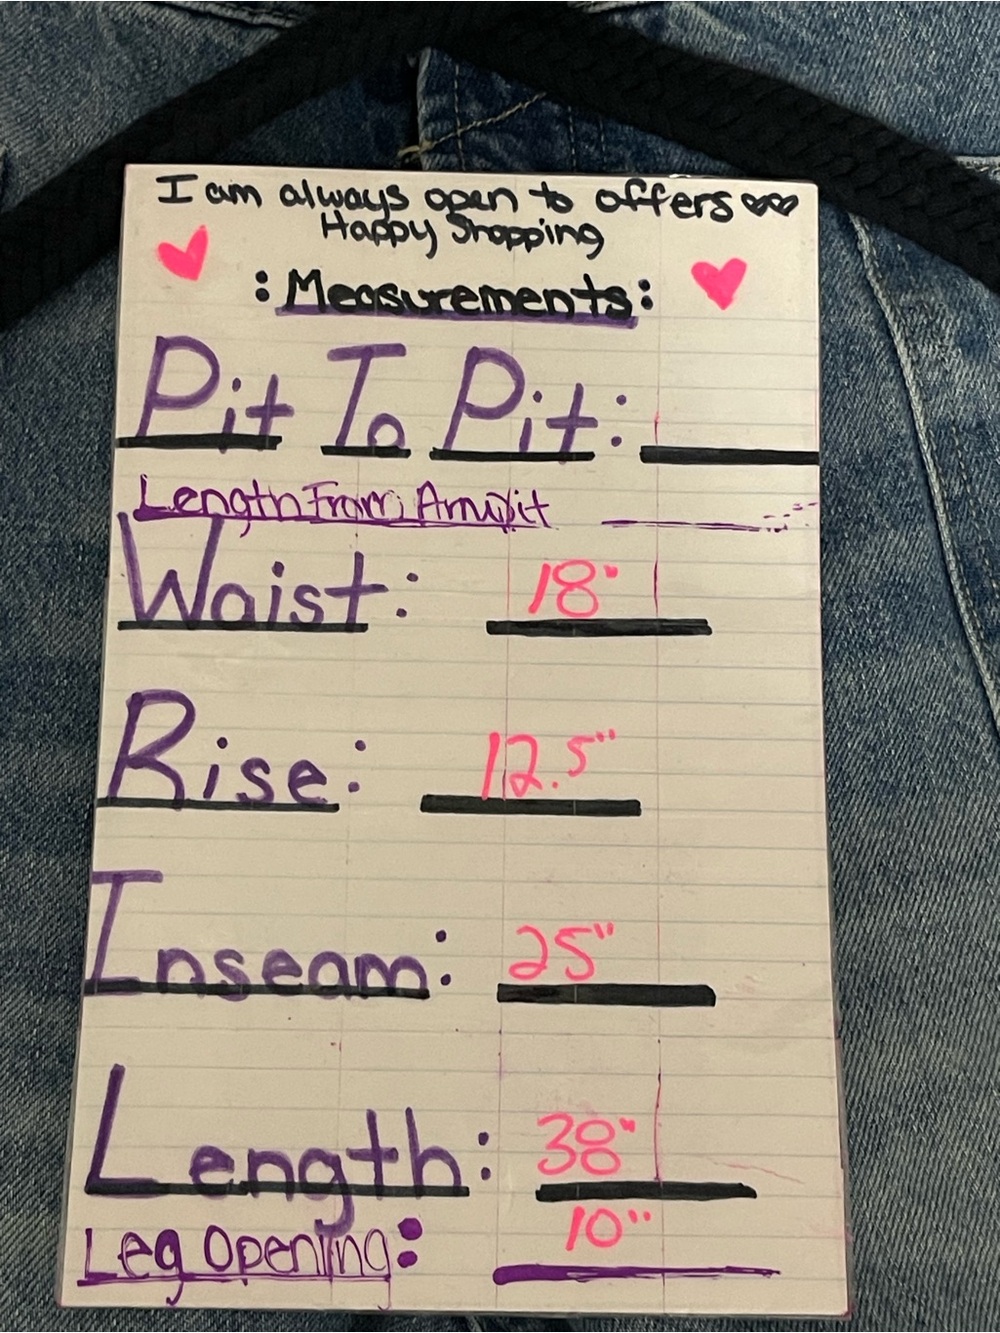 I am always open to offers
Happy Shopping
: Measurements:
Pit To Pit:
Length From Armpit
Waist: 18"
Rise: 12.5"
Inseam: 25"
Length: 38"
Leg Opening: 10"